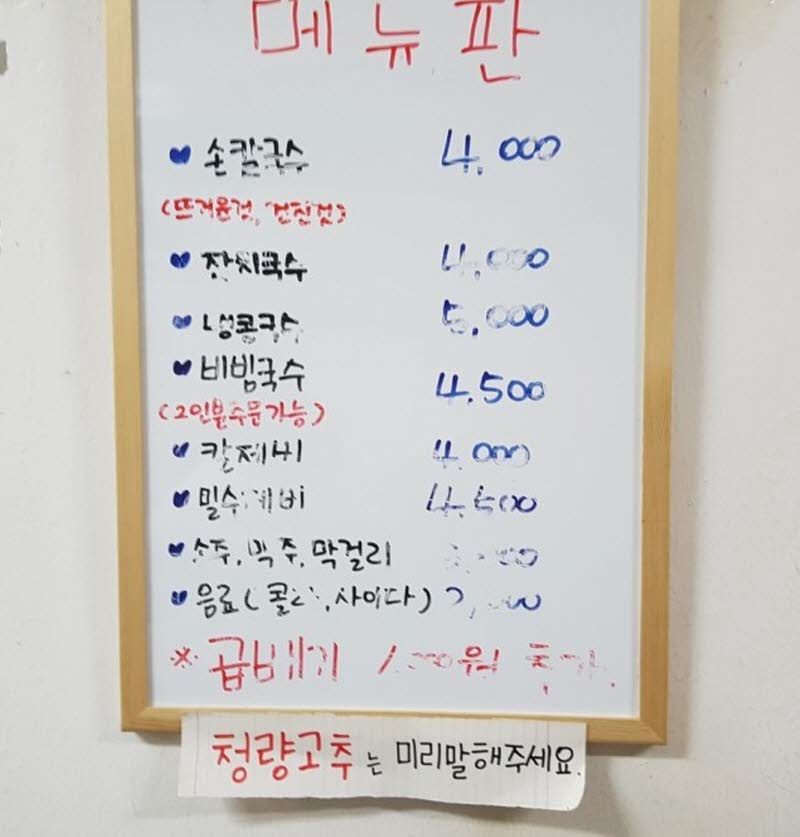 메뉴판
손칼국수 4,000
(뜨거운것, 건진것)
잔치국수 4,000
냉콩국수 5,000
비빔국수 4,500
(2인분주문가능)
칼제비 4,000
4,500
소주, 맥주, 막걸리
음료(콜라, 사이다)
※ 곱빼기 추가
청량고추는 미리말해주세요.